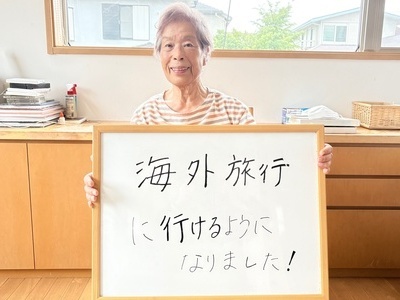 海外旅行
に行けるように
なりました!